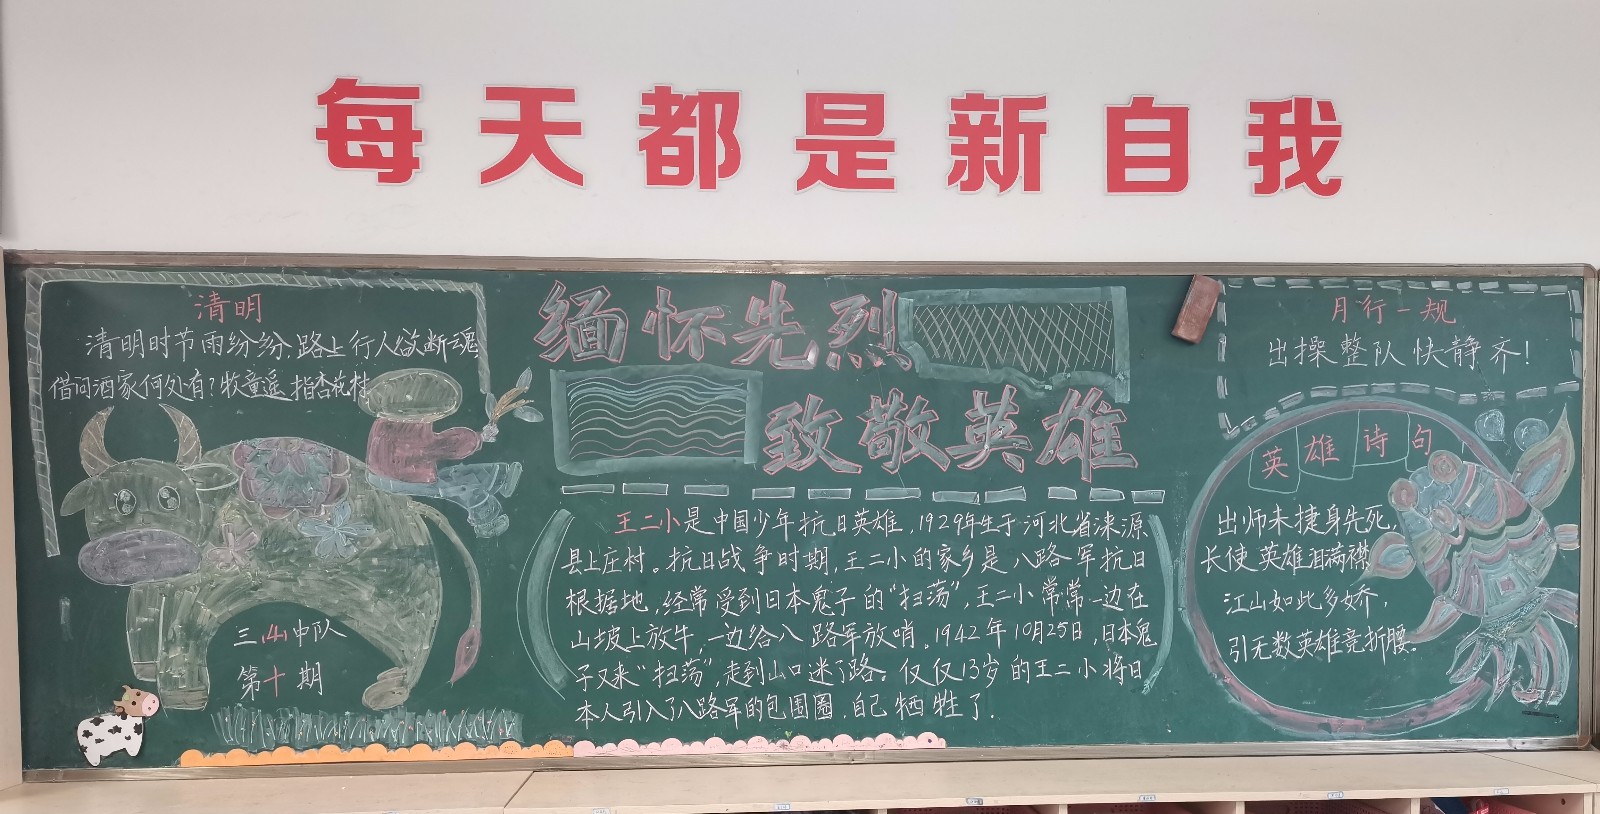 每天都是新自我
清明
清明时节雨纷纷,路上行人欲断魂
借问酒家何处有?牧童遥指杏花村
三(4)中队
第十期
缅怀先烈
致敬英雄
王二小是中国少年抗日英雄,1929年生于河北省涞源
县上庄村。抗日战争时期,王二小的家乡是八路军抗日
根据地,经常受到日本鬼子的“扫荡”,王二小常常一边在
山坡上放牛,一边给八路军放哨。1942年10月25日,日本鬼
子又来“扫荡”,走到山口迷了路。仅仅13岁的王二小将日
本人引入了八路军的包围圈,自己牺牲了.
月行一规
出操整队快静齐!
英雄诗句
出师未捷身先死,
长使英雄泪满襟
江山如此多娇,
引无数英雄竞折腰.